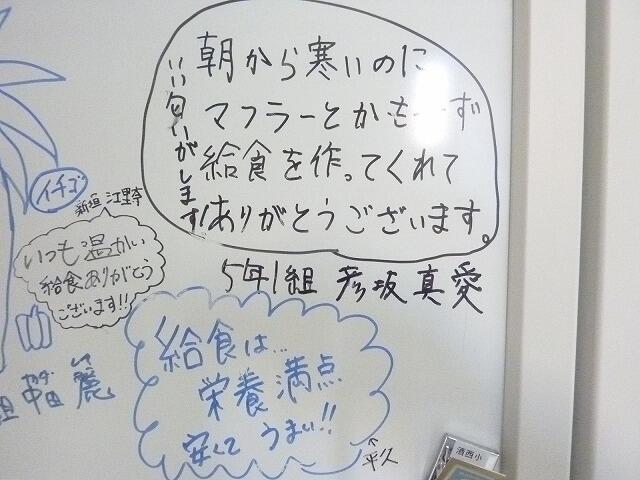 朝から寒いのに
マフラーとか
ず
給食を作ってくれて
ありがとうございます。
いい匂いがします!
5年1組 彦坂 真愛
イチゴ
新垣 江里奈
いつも温かい
給食ありがとう
ございます!!
組 中田 麗
給食は…
栄養満点
安くてうまい!!
平久
酒西小